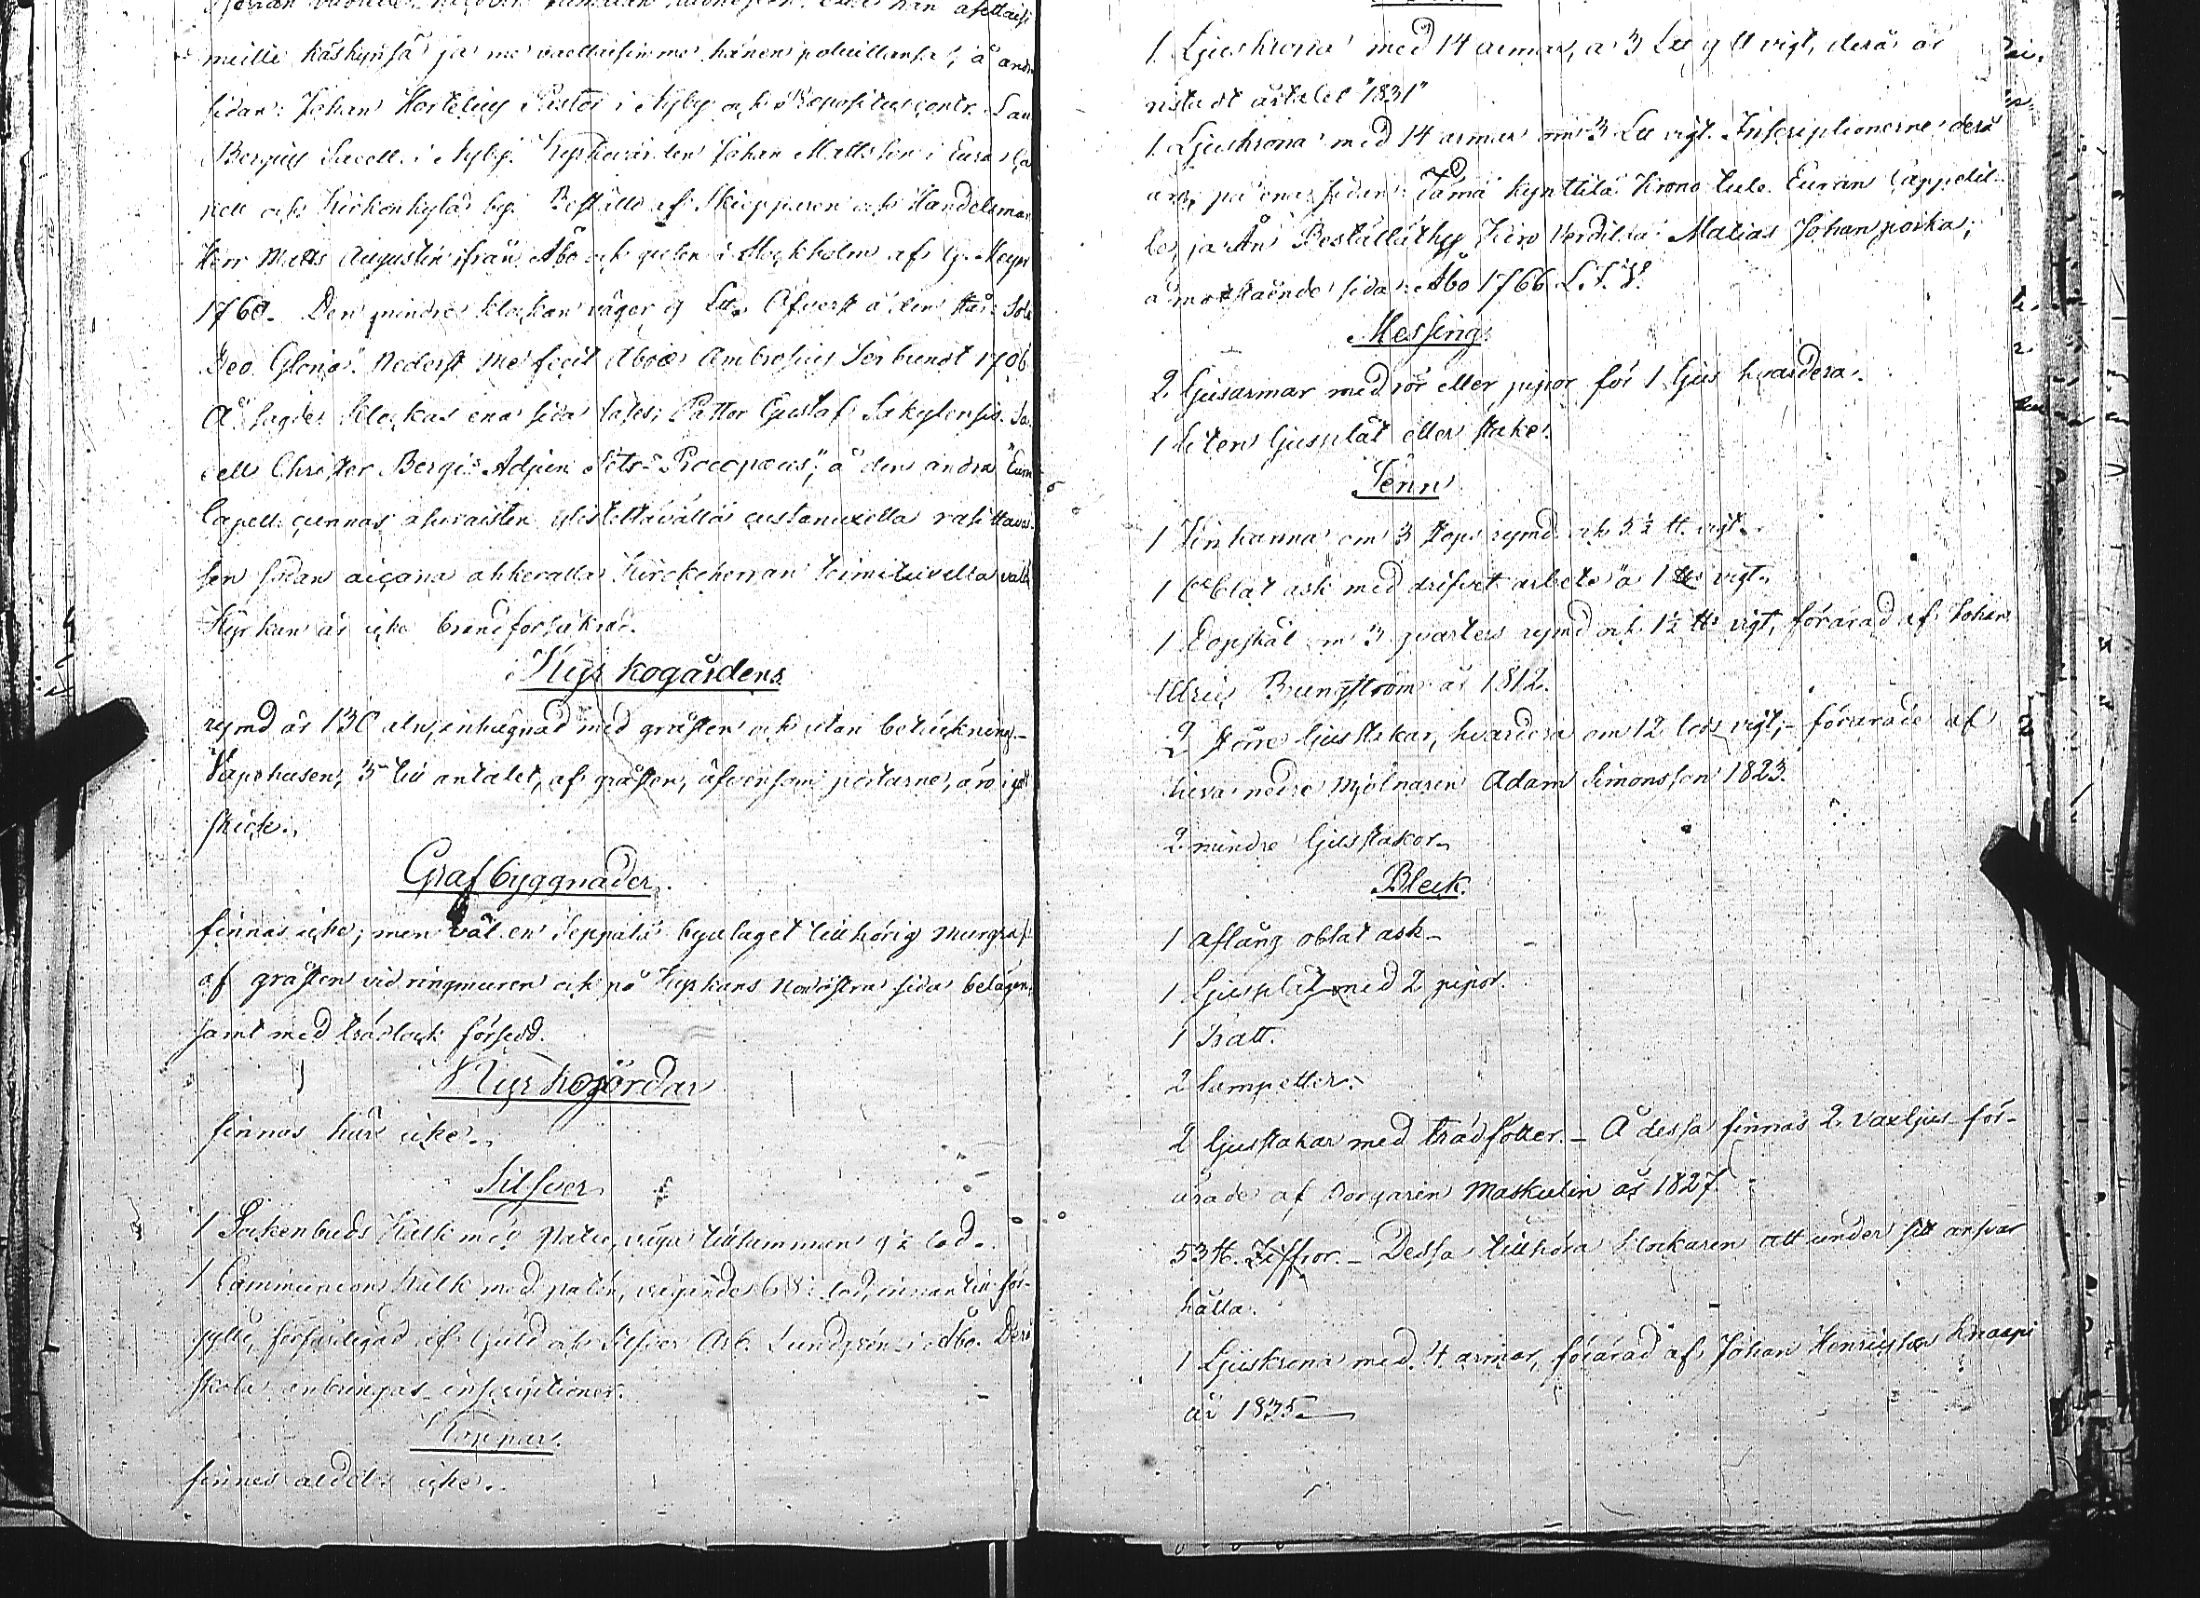 meille käskynsä ja me vaellaisimme hänen poluillansa; å andra
sidan: Johan Hortelius Pastor i Nyby och Præpositus contr. Lau
Bergius Sacell. i Nyby. Kyrkovärden Johan Mattsson i Eura Ca
pell och Kirkonkylä by. Beställd af Skepparen och Handelsman
Herr Matts Augustin ifrån Åbo och guten i Stockholm af G. Meyer
1760. Den mindre klockan väger 9 Lu. Öfverst å den står: Soli
Deo Gloria. Nederst me fecit Aboæ Ambrosius Ser bundt 1706
Å sagde klockas ena sida låses; Pastor Gustaf Sakylensis. Sa
cell Christer Bergi: Adjun: Petr: Procopæus", å den andra "Euran
Capell cunnas
sen sian aicana ahkeralla Kirckeherran toimituxella
Kyrkan är icke brandförsäkrad.
Kyrkogårdens
rymd är 130 aln, inhägnad med gråsten och utan betäckning.
Vapehusen, 3 till antalet, af gråsten, äfvensom portarne, äro i godt
skick.
Grafbyggnader
finnas icke; men väl en Seppälä byalaget tillhörig murgraf
af gråsten vid ringmuren och på Kyrkans nordöstra sida belägen,
samt med trälock försedd.
Kyrkojordar
finnas här icke.
Silfver
1 Sockenbuds Kalk med Paten, väga tillsamman 9½ lod.
1 Communions Kalk med paten, vägande 68 lod, innan till för-
gylld, förfärdigad af Guld och Silfver Arb. Lundgren i Åbo. Derå
skola anbringas inscriptioner.
Koppar.
finnes aldeles icke.
1 Ljuskrona med 14 armar, a 3 Lu 9 tt vigt, derå är
ristadt årtalet "1831"
1 Ljuskrona med 14 armar om 3 Lu vigt. Inscriptionerne derå
äro, på ena sidan: Tämä kynttilä Krono tule Euran Cappelil-
le, ja on Beställäthy Kiro Verdildä Matias Johan poika;
å motstående sida: Åbo 1766 L.S.W.
Messing
2 Ljusarmar med rör eller pipor för 1 ljus hvardera.
1 liten ljusplåt eller stake.
Tenn
1 Vinkanna om 3 stops rymd och 5½ tt. vigt.
1 Oblat ask med drifvet arbete à 1 tt vigt.
1 Dopskål om 3 qvarters rymd och 1½ tt vigt, förärad af Johan
Ulric Bungström år 1812.
2 större ljusstakar, hvardera om 12 lods vigt, förärade af
Kiva nedre Mjölnaren Adam Simonsson 1823.
2 mindre ljusstakor
Bleck.
1 aflång oblat ask
1 Ljusplåt med 2 pipor.
1 Tratt.
2 lampetter.
2 ljusstakar med trädfötter. Å dessa finnas 2 vaxljus för-
ärade af Borgaren Maskulin år 1827.
53 st. Ziffror. Dessa tillhöra klockaren att under sitt ansvar
hålla.
1 Ljuskrona med 4 armar, förärad af Johan Henricsson Knaapi
år 1835